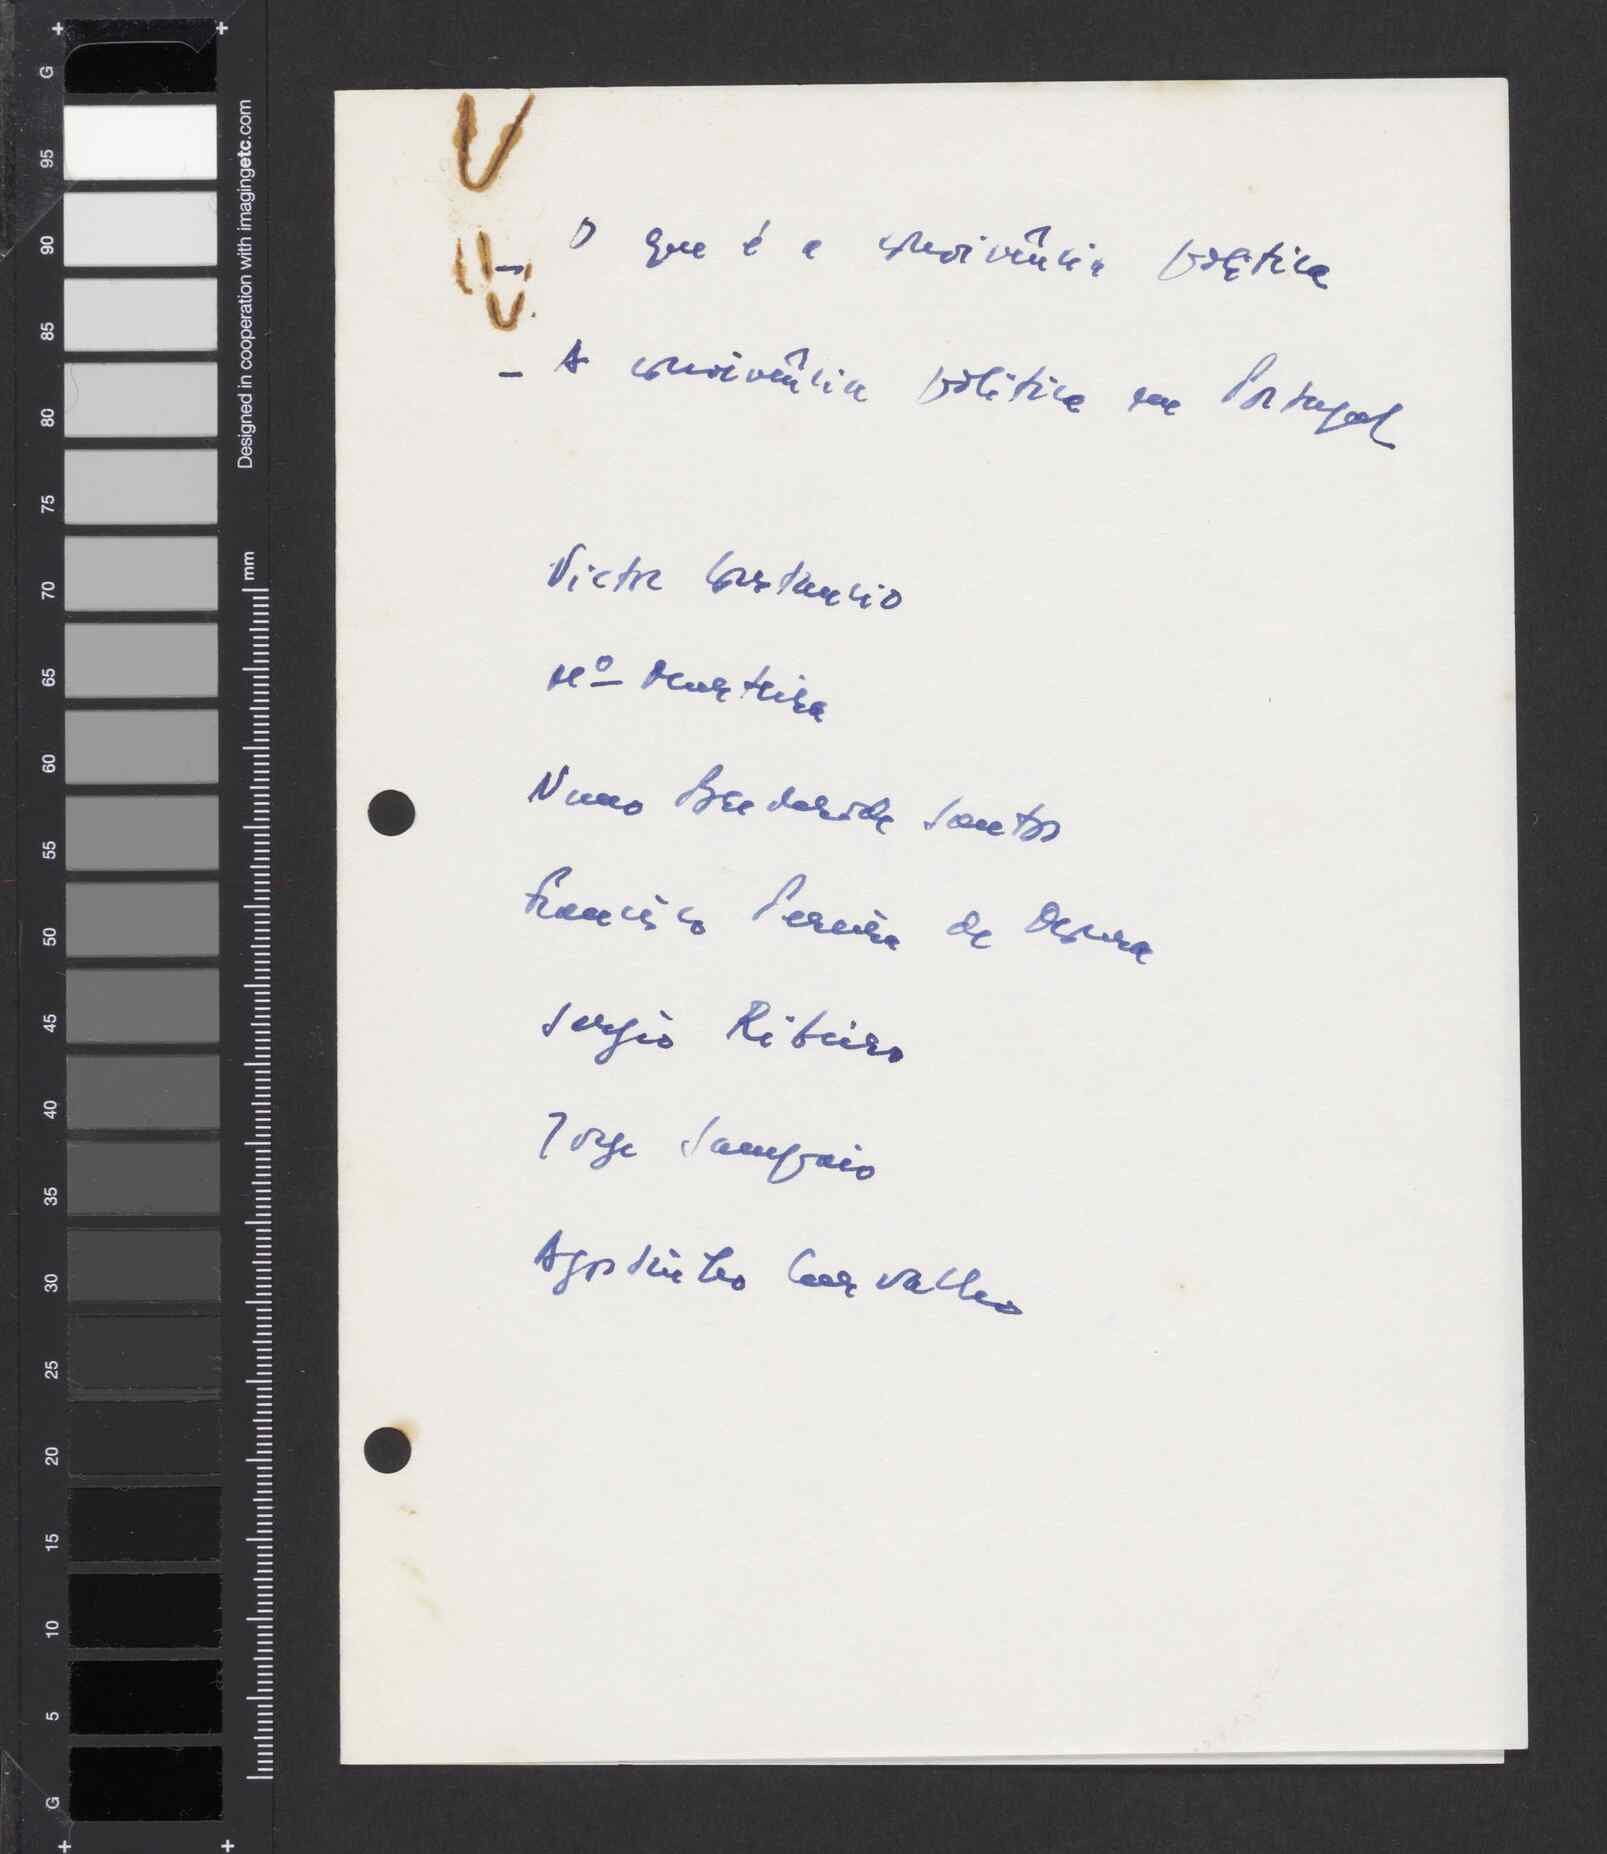 - O que é a convivência política
- A convivência política em Portugal
Victor Constancio
Mº
Nuno Brederode Santos
Francisco Pereira de Moura
Sergio Ribeiro
Jorge Sampaio
Agostinho Carvalho
G
95
90
85
80
75
70
65
60
55
50
45
40
35
30
25
20
15
10
5
G
Designed in cooperation with imagingetc.com
mm